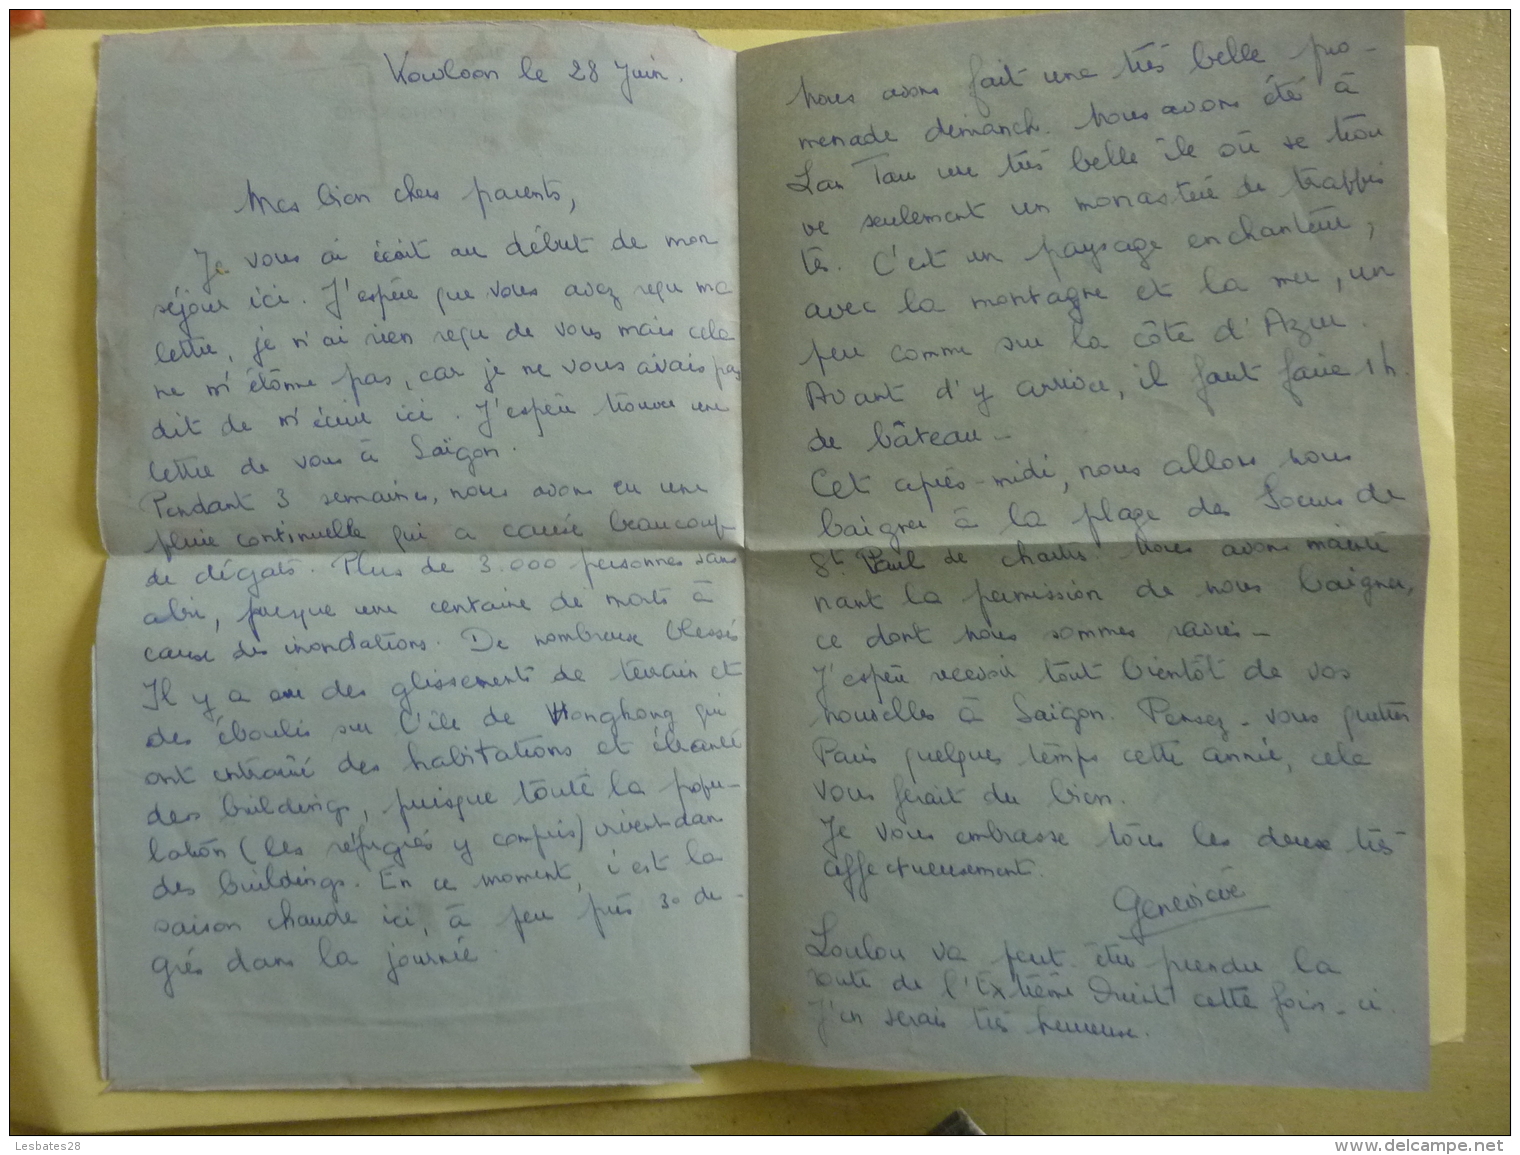 Kowloon le 28 Juin.
Mes bien chers parents,
Je vous ai écrit au début de mon
séjour ici. J'espère que vous avez reçu ma
lettre, je n'ai rien reçu de vous mais cela
ne m'étonne pas, car je ne vous avais pas
dit de m'écrire ici. J'espère trouver une
lettre de vous à Saïgon.
Pendant 3 semaines, nous avons eu une
pluie continuelle qui a causé beaucoup
de dégats. Plus de 3.000 personnes sans
abri, presque une centaine de morts à
cause des inondations. De nombreux blessés
Il y a eu des glissements de terrain et
des éboulis sur l'île de Hongkong qui
ont entrainé des habitations et ébranlé
des buildings, puisque toute la popu-
lation (les réfugiés y compris) vivent dans
des buildings. En ce moment, c'est la
saison chaude ici, à peu près 30 de-
grés dans la journée.
Nous avons fait une très belle pro-
menade dimanche. Nous avons été à
Lan Tau une très belle île où se trou
ve seulement un monastère de trappis
tes. C'est un paysage enchanteur,
avec la montagne et la mer, un
peu comme sur la côte d'Azur.
Avant d'y arriver, il faut faire 1h.
de bâteau-
Cet après-midi, nous allons nous
baigner à la plage des Soeurs de
St. Paul de chartres nous avons mainte
nant la permission de nous baigner,
ce dont nous sommes ravies-
J'espère recevoir tout bientôt de vos
nouvelles à Saïgon. Pensez-vous quitter
Paris quelques temps cette année, cela
vous ferait du bien.
Je vous embrasse tous les deux très
affectueusement.
Geneviève
Loulou va peut être prendre la
route de l'Extrême Orient cette fois-ci.
J'en serais très heureuse.
Lesbates28
www.delcampe.net